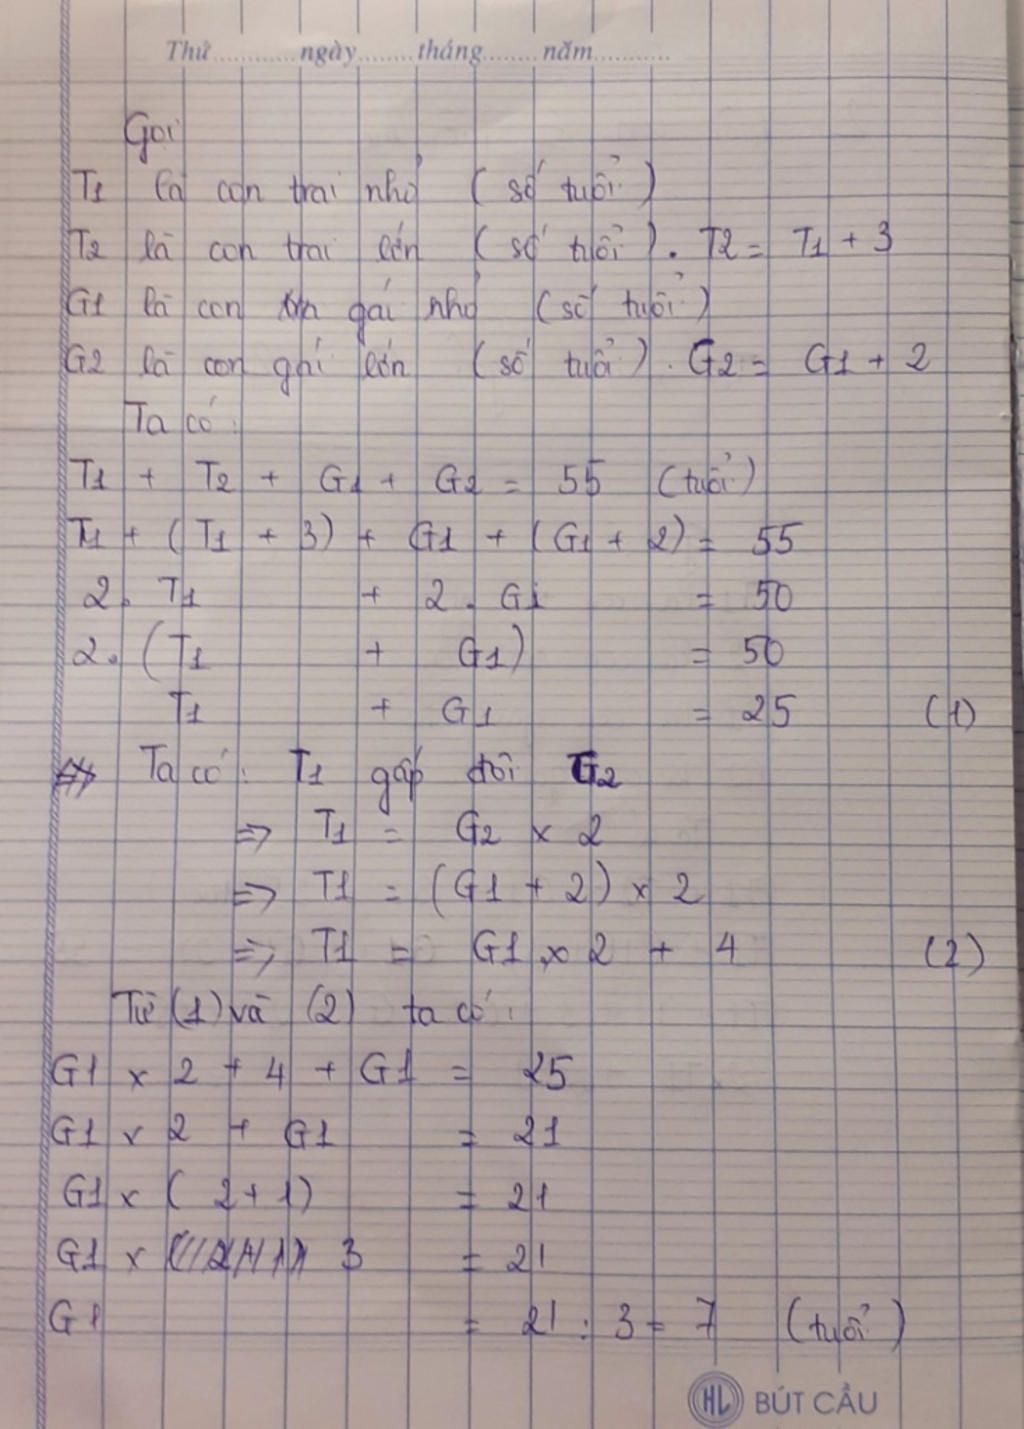 Thứ............ngày........tháng........năm...........
Gọi
T1 là con trai nhỏ (số tuổi)
T2 là con trai lớn (số tuổi). T2 = T1 + 3
G1 là con gái nhỏ (số tuổi)
G2 là con gái lớn (số tuổi). G2 = G1 + 2
Ta có:
T1 + T2 + G1 + G2 = 55 (tuổi)
T1 + (T1 + 3) + G1 + (G1 + 2) = 55
2. T1 + 2. G1 = 50
2. (T1 + G1) = 50
T1 + G1 = 25 (1)
Ta có: T1 gấp đôi G2
=> T1 = G2 x 2
=> T1 = (G1 + 2) x 2
=> T1 = G1 x 2 + 4 (2)
Từ (1) và (2) ta có:
G1 x 2 + 4 + G1 = 25
G1 x 2 + G1 = 21
G1 x (2+1) = 21
G1 x 3 = 21
G1 = 21 : 3 = 7 (tuổi)
HL BÚT CẦU